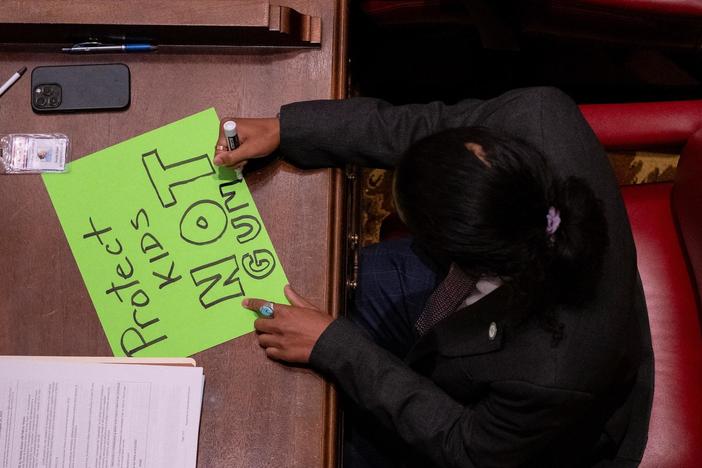 Protect
KIDS
NOT
GUN